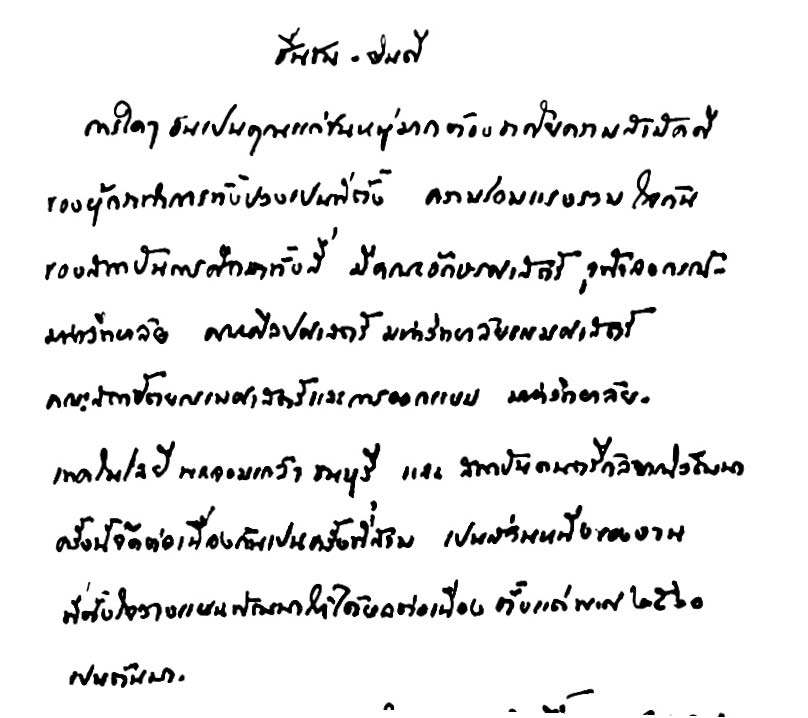 ชื่นชม - ยินดี
การใดๆ อันเป็นคุณแก่ชนหมู่มากต้องอาศัยความสามัคคี
ของผู้กระทำการทั้งปวงเป็นที่ตั้ง ความร่วมแรงรวมใจกัน
ของสถาบันการศึกษาทั้งสี่ มีคณะอักษรศาสตร์ จุฬาลงกรณ์-
มหาวิทยาลัย คณะศิลปศาสตร์ มหาวิทยาลัยธรรมศาสตร์
คณะสถาปัตยกรรมศาสตร์และการออกแบบ มหาวิทยาลัย-
เทคโนโลยี พระจอมเกล้า ธนบุรี และ สถาบันดนตรีกัลยาณิวัฒนา
ครั้งนี้จัดต่อเนื่องกันเป็นครั้งที่สาม เป็นส่วนหนึ่งของงาน
ที่ตั้งใจวางแผนพัฒนาให้ได้ผลต่อเนื่อง ตั้งแต่ พ.ศ. ๒๕๖๐
เป็นต้นมา.